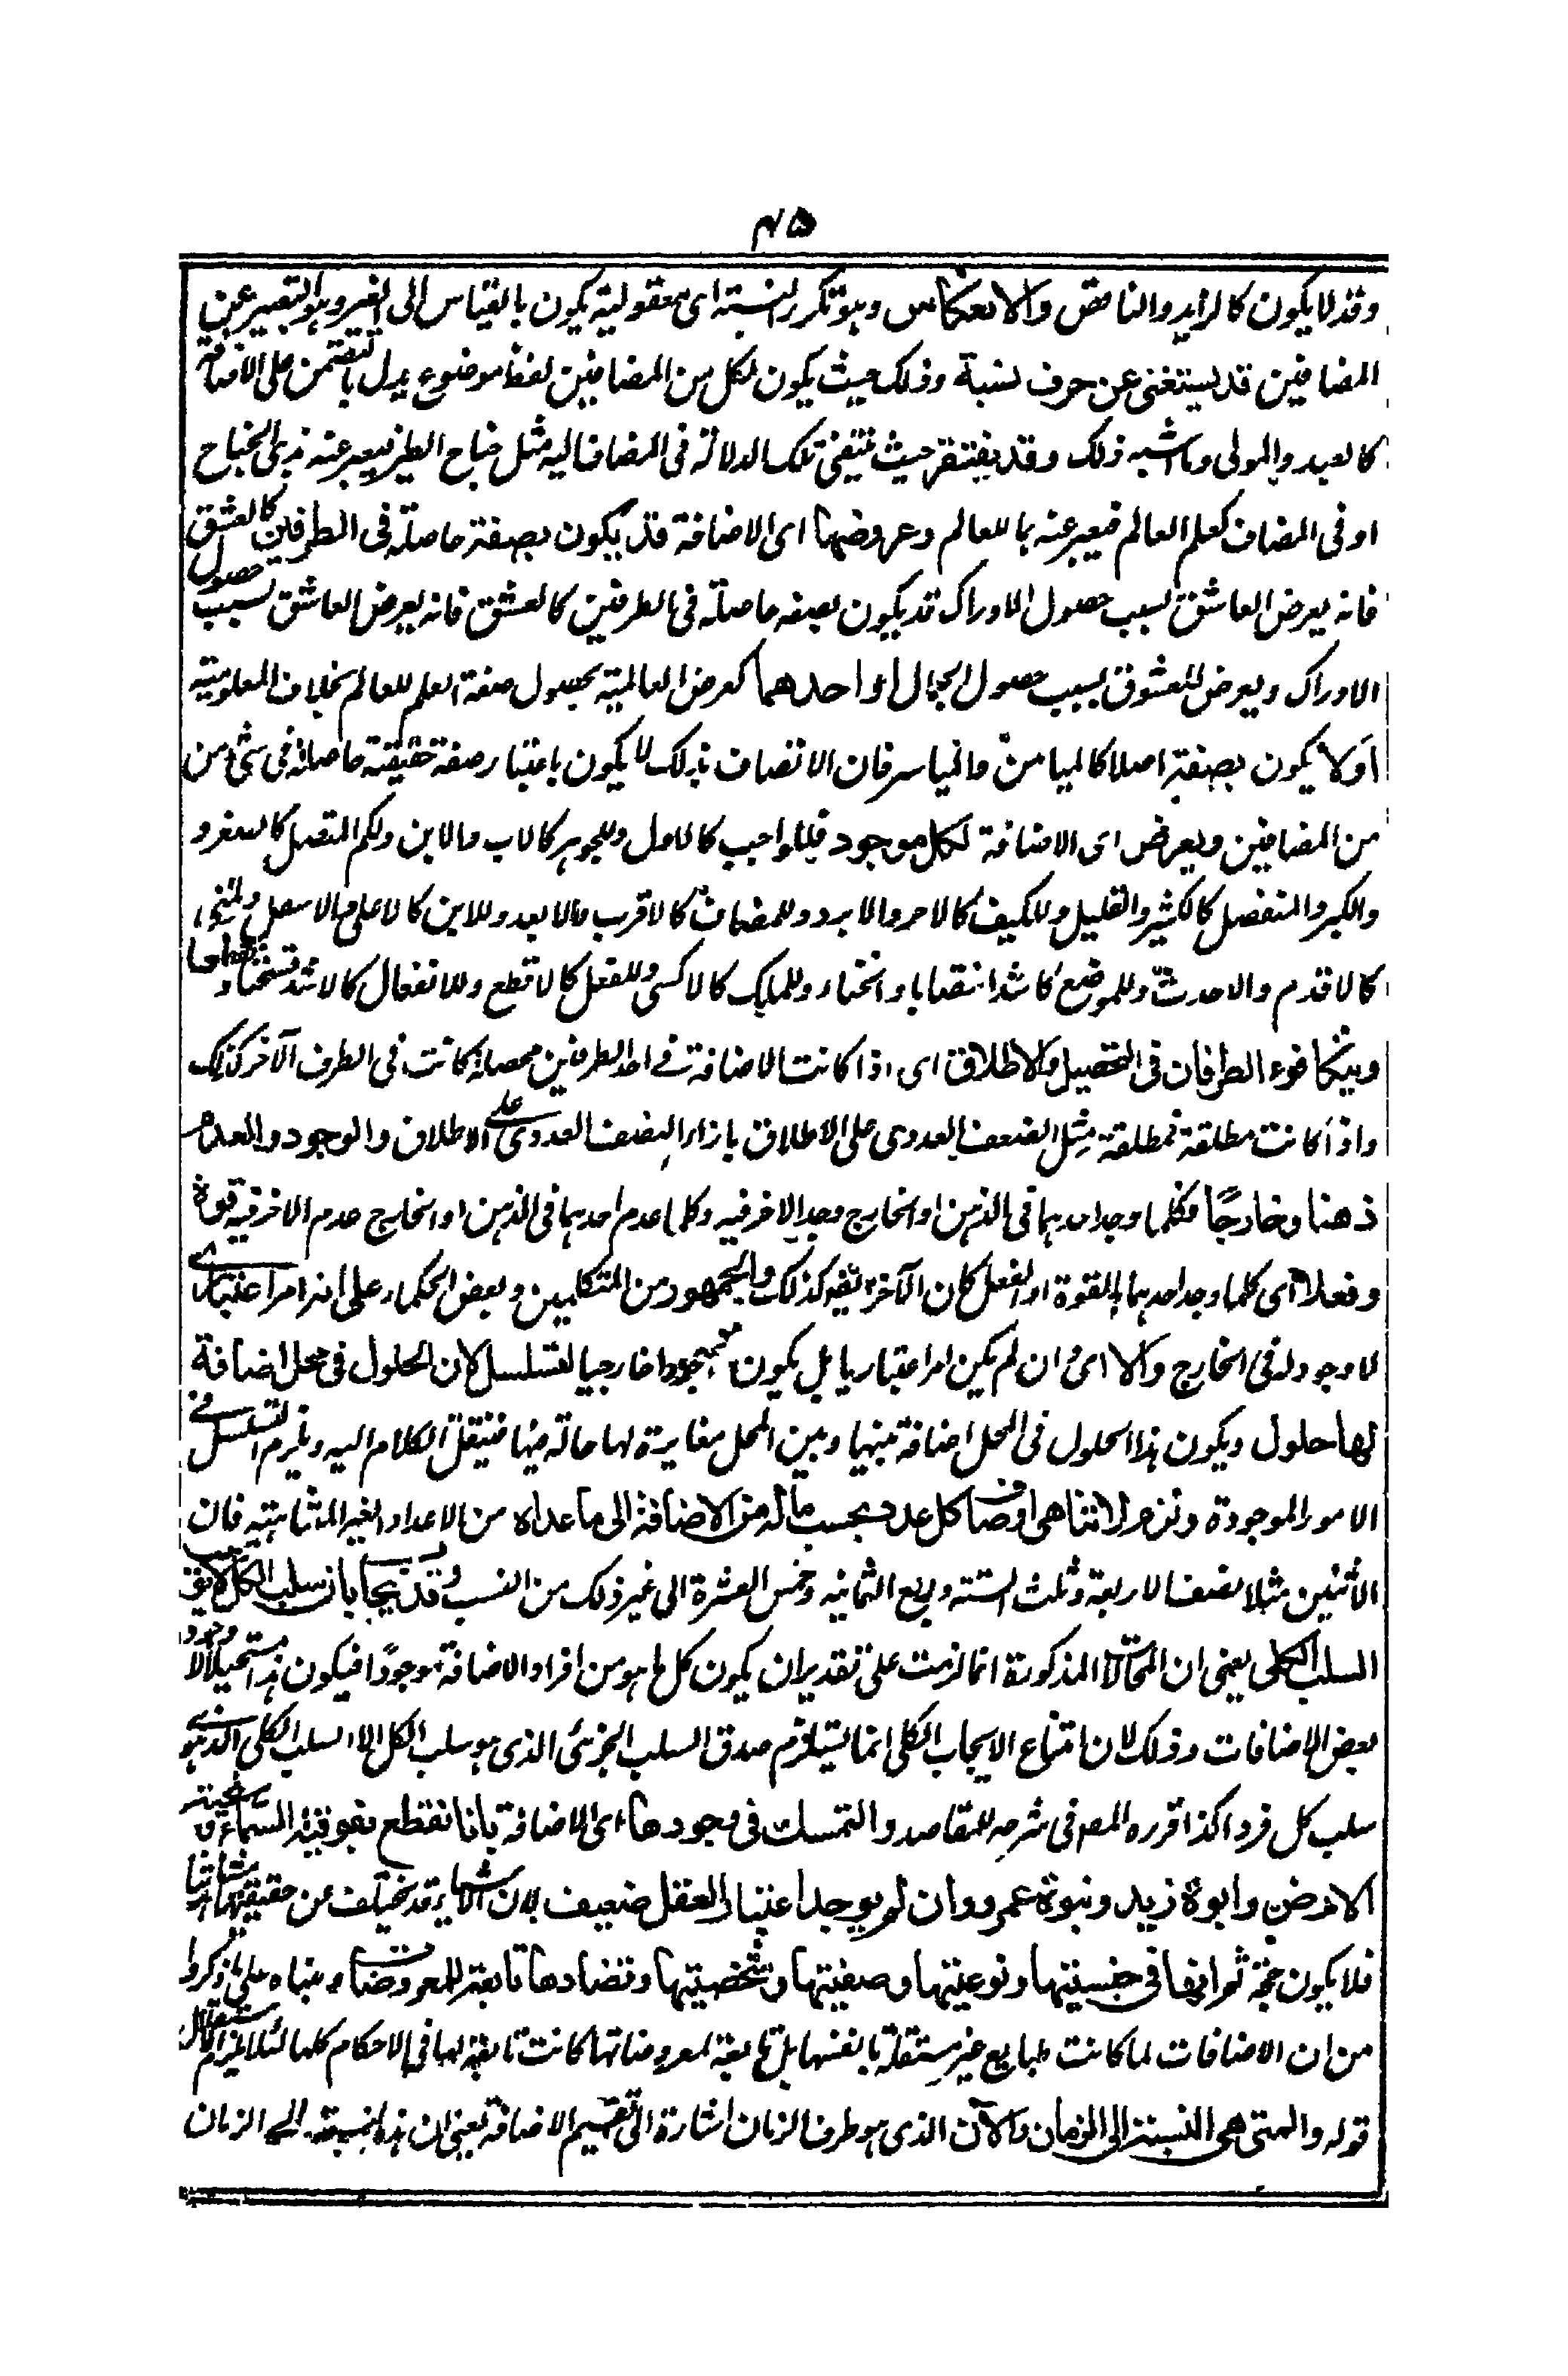 ٤٥
وقد لا يكون كالزايد والناقص والانعكاس وهو تكرر النسبة اى معقولية يكون بالقياس الى الغير وهو التعبير عن
المضافين قد يستغنى عن حرف نسبة وذلك حيث يكون لكل من المضافين لفظ موضوع يدل بالتضمن على الاضافة
كالعبد والمولى وما اشبه ذلك وقد يفتقر حيث تنتفى تلك الدلالة فى المضاف اليه مثل جناح الطير فيعبر عنه بذى الجناح
او فى المضاف كعلم العالم فيعبر عنه بما للعالم وعروضها اى الاضافة قد يكون بصفة حاصلة فى الطرفين كالعشق
فانه يعرض العاشق بسبب حصول الادراك قد يكون بصفه حاصلة فى الطرفين كالعشق فانه يعرض العاشق بسبب حصول
الادراك ويعرض للمعشوق بسبب حصول الجمال او احدهما كعرض العالمية بحصول صفة العلم للعالم بخلاف المعلومية
او لا يكون بصفة اصلا كالميامن والمياسر فان الاتصاف بذلك لا يكون باعتبار صفة حقيقته حاصلة فى شئ من
من المضافين ويعرض اى الاضافة لكل موجود فللواجب كالاول وللجوهر كالاب والابن ولكم المتصل كالصغر و
والكبر والمنفصل كالكثير والقليل وللكيف كالاحر والابرد وللمضاف كالاقرب والابعد وللاين كالاعلى والاسفل وللمتى
كالاقدم والاحدث وللموضع كاشد انتصابا وانحناء وللملك كالاكسى وللفعل كالاقطع وللانفعال كالاشد تسخنا وتقطعا
ويتكافوء الطرفان فى التحصيل والاطلاق اى اذا كانت الاضافة فے احد الطرفين محصلة كانت فى الطرف الآخر كذلك
واذا كانت مطلقة فمطلقة مثل الضعف العددى على الاطلاق بازاء النصف العددى على الاطلاق والوجود والعدم
ذهنا وخارجًا فكلما وجد احدهما فى الذهن او الخارج وجد الاخر فيه وكلما عدم احدهما فى الذهن او الخارج عدم الاخر فيه قوة
وفعلا اى كلما وجد احدهما بالقوة او الفعل كان الآخر ايضا كذلك والجمهور من المتكلمين وبعض الحكماء على انه امر اعتبارے
لا وجود له فى الخارج والا اى وان لم يكن امر اعتباريا بل يكون موجودا خارجيا لتسلسل لان الحلول فى محل اضافة
لها حلول ويكون هذا الحلول فى المحل اضافة بينها وبين المحل مغايرة لها حالة فيها فينقل الكلام اليه ويلزم التسلسل فے
الامور الموجودة ولزم لا تناهى اوصاف كل عدد بحسب ماله من الاضافة الى ما عداه من الاعداد الغير المتناهية فان
الاثنين مثلا نصف الاربعة وثلث الستة وربع الثمانيه وخمس العشرة الى غير ذلك من النسب وقد يجاب بان سلب الكل لا يوجب
السلب الكلى يعنى ان المحالات المذكورة انما لزمت على تقدير ان يكون كل ما هو من افراد الاضافة موجودًا فيكون هذا مستحيلا لا وجود
بعض الاضافات وذلك لان امتناع الايجاب الكلى انما يستلزم صدق السلب الجزئى الذى هو سلب الكل لا السلب الكلى الذى هو
سلب كل فرد اكذا قرره المصـ فى شرحه للمقاصد والتمسك فى وجودها اى الاضافة بانا نقطع بفوقية السماء وتحتية
الارض وابوة زيد وبنوة عمرو وان لم يوجد اعتبار العقل ضعيف لان الاشياء قد يختلف عن حقيقتها
فلا يكون حجة ثم انها فى جنسيتها ونوعيتها وصفيتها وشخصيتها وتضادها تابعة للمعروضات ومبناه على ما ذكروا
من ان الاضافات لما كانت طبايع غير مستقلة بانفسها بل تابعة لمعروضاتها كانت تابعة لها فى الاحكام كلها لئلا يلزم الاستقلال
قوله والمتى هى النسبة الى الزمان والآن الذى هو طرف الزمان اشارة الى تقسيم الاضافة يعنى ان هذا النسبة الے الزمان